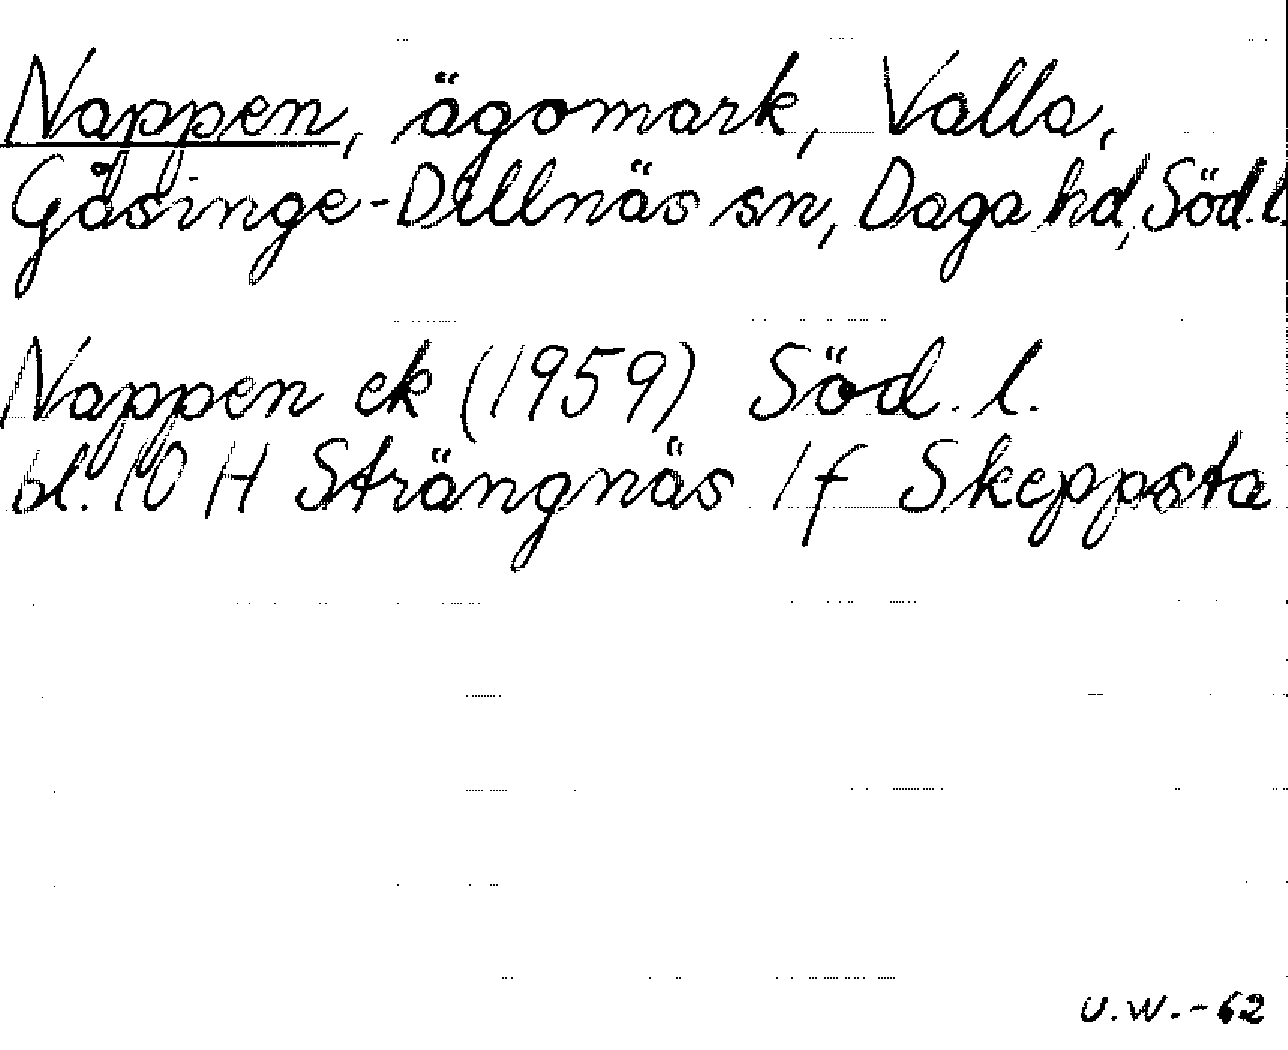 Nappen, ägomark, Valla,
Gåsinge-Dillnäs sn, Daga hd, Söd. l.
Nappen ek (1959) Söd. l.
bl. 10 H Strängnäs 1 f Skeppsta
U.W.-62